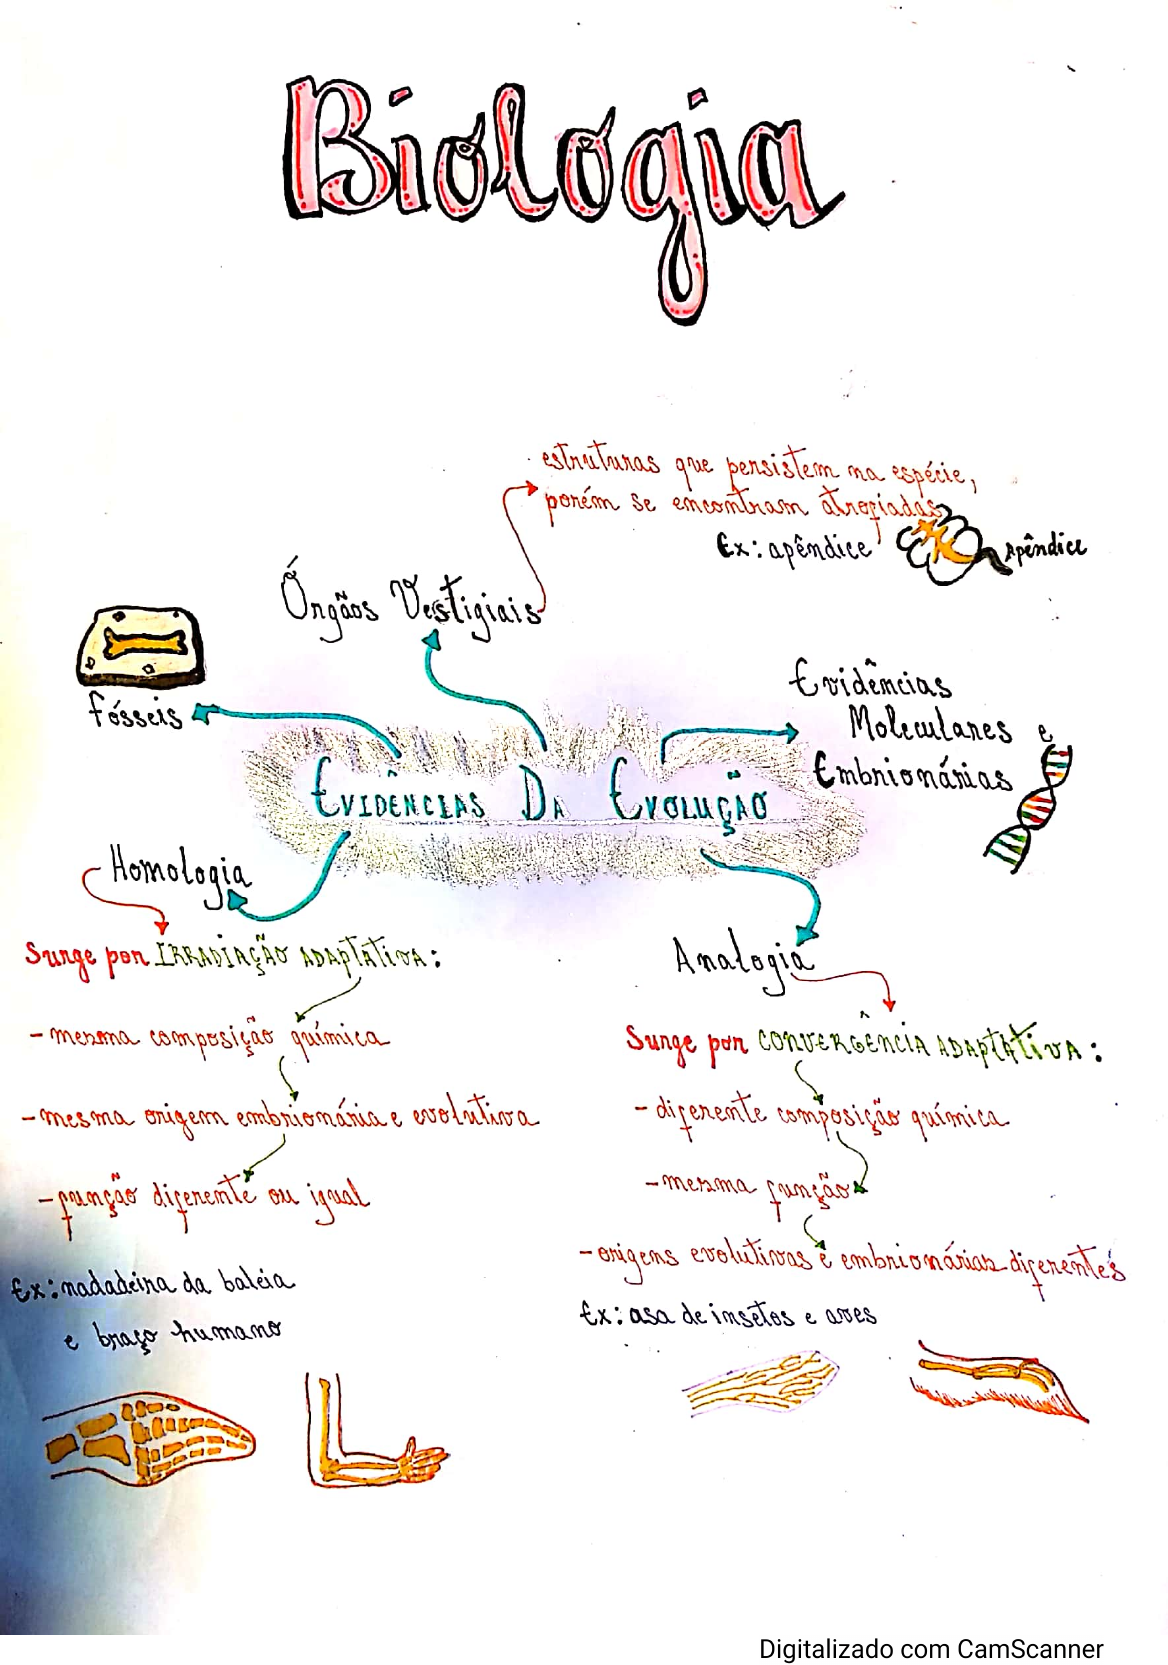 Biologia
estruturas que persistem na espécie,
porém se encontram atrofiadas
Ex: apêndice
Apêndice
Órgãos Vestigiais
Fósseis
Evidências
Moleculares e
Embrionárias
Evidências Da Evolução
Homologia
Surge por IRRADIAÇÃO ADAPTATIVA:
- mesma composição química
- mesma origem embrionária e evolutiva
- função diferente ou igual
Ex: nadadeira da baleia
e braço humano
Analogia
Surge por CONVERGÊNCIA ADAPTATIVA:
- diferente composição química
- mesma função
- origens evolutivas e embrionárias diferentes
Ex: asa de insetos e aves
Digitalizado com CamScanner